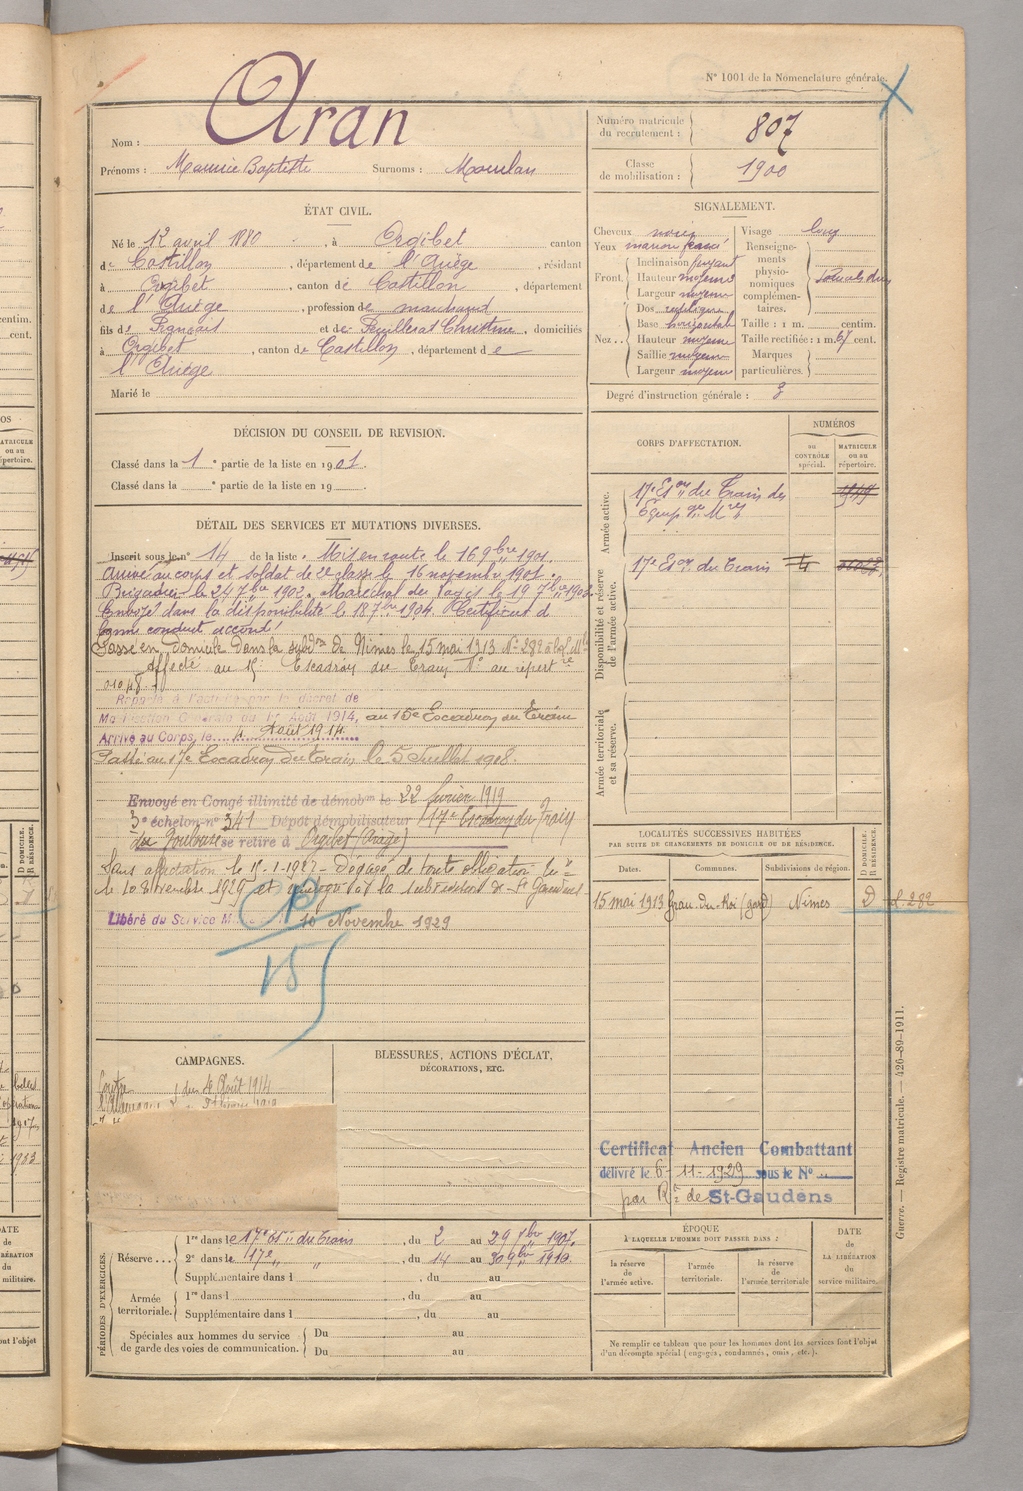 N° 1001 de la Nomenclature générale.
Nom : Aran
Prénoms : Maurice Baptiste Surnoms : Moulan
Numéro matricule du recrutement : 807
Classe de mobilisation : 1900
ÉTAT CIVIL.
Né le 12 avril 1880, à Orgibet canton
de Castillon, département de l'Ariège, résidant
à Orgibet, canton de Castillon, département
de l'Ariège, profession de marchand
fils de François et de Peuillerat Christine, domiciliés
à Orgibet, canton de Castillon, département de
l'Ariège
Marié le
SIGNALEMENT.
Cheveux noirs
Yeux marron foncé
Front
Inclinaison fuyant
Hauteur moyenne
Largeur moyenne
Nez..
Dos rectiligne
Base horizontal
Hauteur moyenne
Saillie moyenne
Largeur moyenne
Visage long
Renseignements physionomiques complémentaires.
Taille : 1 m. centim.
Taille rectifiée : 1 m. 67 cent.
Marques particulières.
Degré d'instruction générale : 3
DÉCISION DU CONSEIL DE REVISION.
Classé dans la 1e partie de la liste en 1901.
Classé dans la e partie de la liste en 19
DÉTAIL DES SERVICES ET MUTATIONS DIVERSES.
Inscrit sous le n° 14 de la liste. Mis en route le 16 9bre 1901.
Arrivé au corps et soldat de 2e classe le 16 novembre 1901.
Brigadier le 24 7bre 1902. Maréchal des Logis le 19 7bre 1903
Envoyé dans la disponibilité le 18 7bre 1904. Certificat de
bonne conduite accordé
Passé en domicile dans la subdon de Nimes le 15 mai 1913 N° 282
Affecté au 15e Escadron du Train N° au répertre
01048
Rappelé à l'activité par le décret de
Mobilisation Générale du 1er Août 1914, au 15e Escadron du Train
Arrivé au Corps, le 4 Août 1914
Passé au 17e Escadron du Train le 5 Juillet 1918.
Envoyé en Congé illimité de démobon le 22 février 1919
3e échelon n° 341 Dépôt démobilisateur 17e Escadron du Train
de Toulouse se retire à Orgibet (Ariège)
Sans affectation le 15-1-1927 - Dégagé de toute obligation
le 10 Novembre 1929 et la subdivision de St Gaudens
Libéré du Service 10 Novembre 1929
P
15
CORPS D'AFFECTATION.
NUMÉROS
au CONTRÔLE spécial.
MATRICULE ou au répertoire.
Armée active.
17e Eson du Train des
Equipges Mres
1949
Disponibilité et réserve de l'armée active.
17e Eson du Train
Armée territoriale et sa réserve.
LOCALITÉS SUCCESSIVES HABITÉES
PAR SUITE DE CHANGEMENTS DE DOMICILE OU DE RÉSIDENCE.
Dates. Communes. Subdivisions de région. D DOMICILE. R RÉSIDENCE.
15 mai 1913 Grau-du-Roi (gard) Nimes D d. 282
Certificat Ancien Combattant
délivré le 6-11-1929 sous le N°
par Rt de St-Gaudens
CAMPAGNES.
Contre du 4 Août 1914
l'Allemagne
BLESSURES, ACTIONS D'ÉCLAT,
DÉCORATIONS, ETC.
PÉRIODES D'EXERCICES.
Réserve...
1re dans le 17e Eson du Train, du 2 au 29 7bre 1907.
2e dans le 17e " ", du 14 au 30 9bre 1910.
Supplémentaire dans l , du au
Armée territoriale.
1re dans l , du au
Supplémentaire dans l , du au
Spéciales aux hommes du service de garde des voies de communication.
Du au
Du au
ÉPOQUE
À LAQUELLE L'HOMME DOIT PASSER DANS :
la réserve de l'armée active.
l'armée territoriale.
la réserve de l'armée territoriale
DATE de LA LIBÉRATION du service militaire.
Ne remplir ce tableau que pour les hommes dont les services font l'objet
d'un décompte spécial (engagés, condamnés, omis, etc.).
Guerre. — Registre matricule. — 426-89-1911.